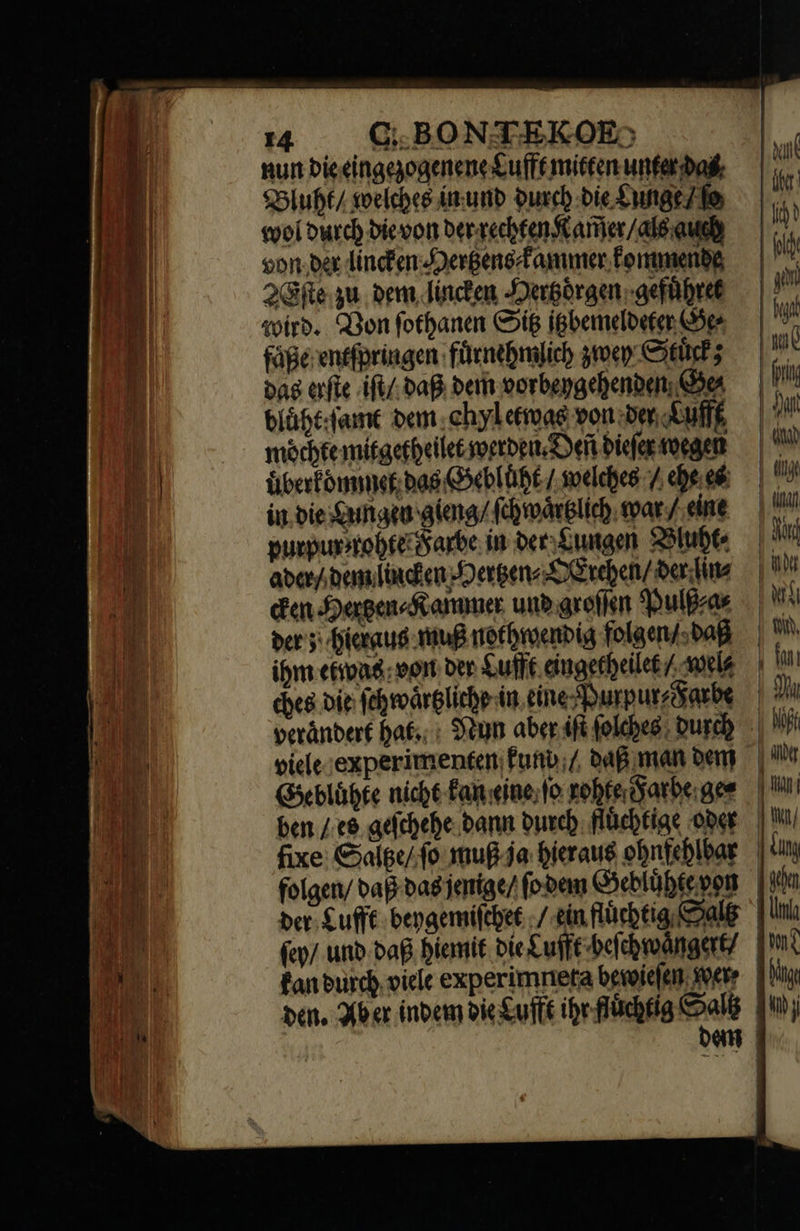 14 C. BONTEKOE
nun die eingezogenene Lufft mitten unter daß
Bluht/ welches in und durch die Lunge/ ſo
wol durch die von der rechten Kam̃er/als auch
von der lincken Hertzens-kammer kommende
Eſte zu dem lincken Hertzoͤrgen gefuͤhret
wird. Von ſothanen Sitz itzbemeldeter Ge-
faͤße entſpringen fuͤrnehmlich zwey Stuͤck;
das erſte iſt/ daß dem vorbeygehenden Ge-
bluͤht ſamt dem chyl etwas von der Lufft
moͤchte mitgetheilet werden. Deñ dieſer wegen
uͤberkoͤmmet das Gebluͤht / welches / ehe es
in die Lungen gieng/ ſchwaͤrtzlich war / eine
purpur-rohte Farbe in der Lungen Bluht-
ader/ dem lincken Hertzen-OErchen/ der lin-
cken Hertzen-Kammer und groſſen Pulß-a-
der ; hieraus muß nothwendig folgen/ daß
ihm etwas von der Lufft eingetheilet / wel-
ches die ſchwaͤrtzliche in eine Purpur-Farbe
veraͤndert hat. Nun aber iſt ſolches durch
viele experimenten kund / daß man dem
Gebluͤhte nicht kan eine ſo rohte Farbe ge-
ben / es geſchehe dann durch fluͤchtige oder
fixe Saltze/ ſo muß ja hieraus ohnfehlbar
folgen/ daß das jenige/ ſo dem Gebluͤhte von
der Lufft beygemiſchet / ein fluͤchtig Saltz
ſey/ und daß hiemit die Lufft beſchwaͤngert/
kan durch viele experimneta bewieſen wer-
den. Aber indem die Lufft ihr fluͤchtig Saltz
dem